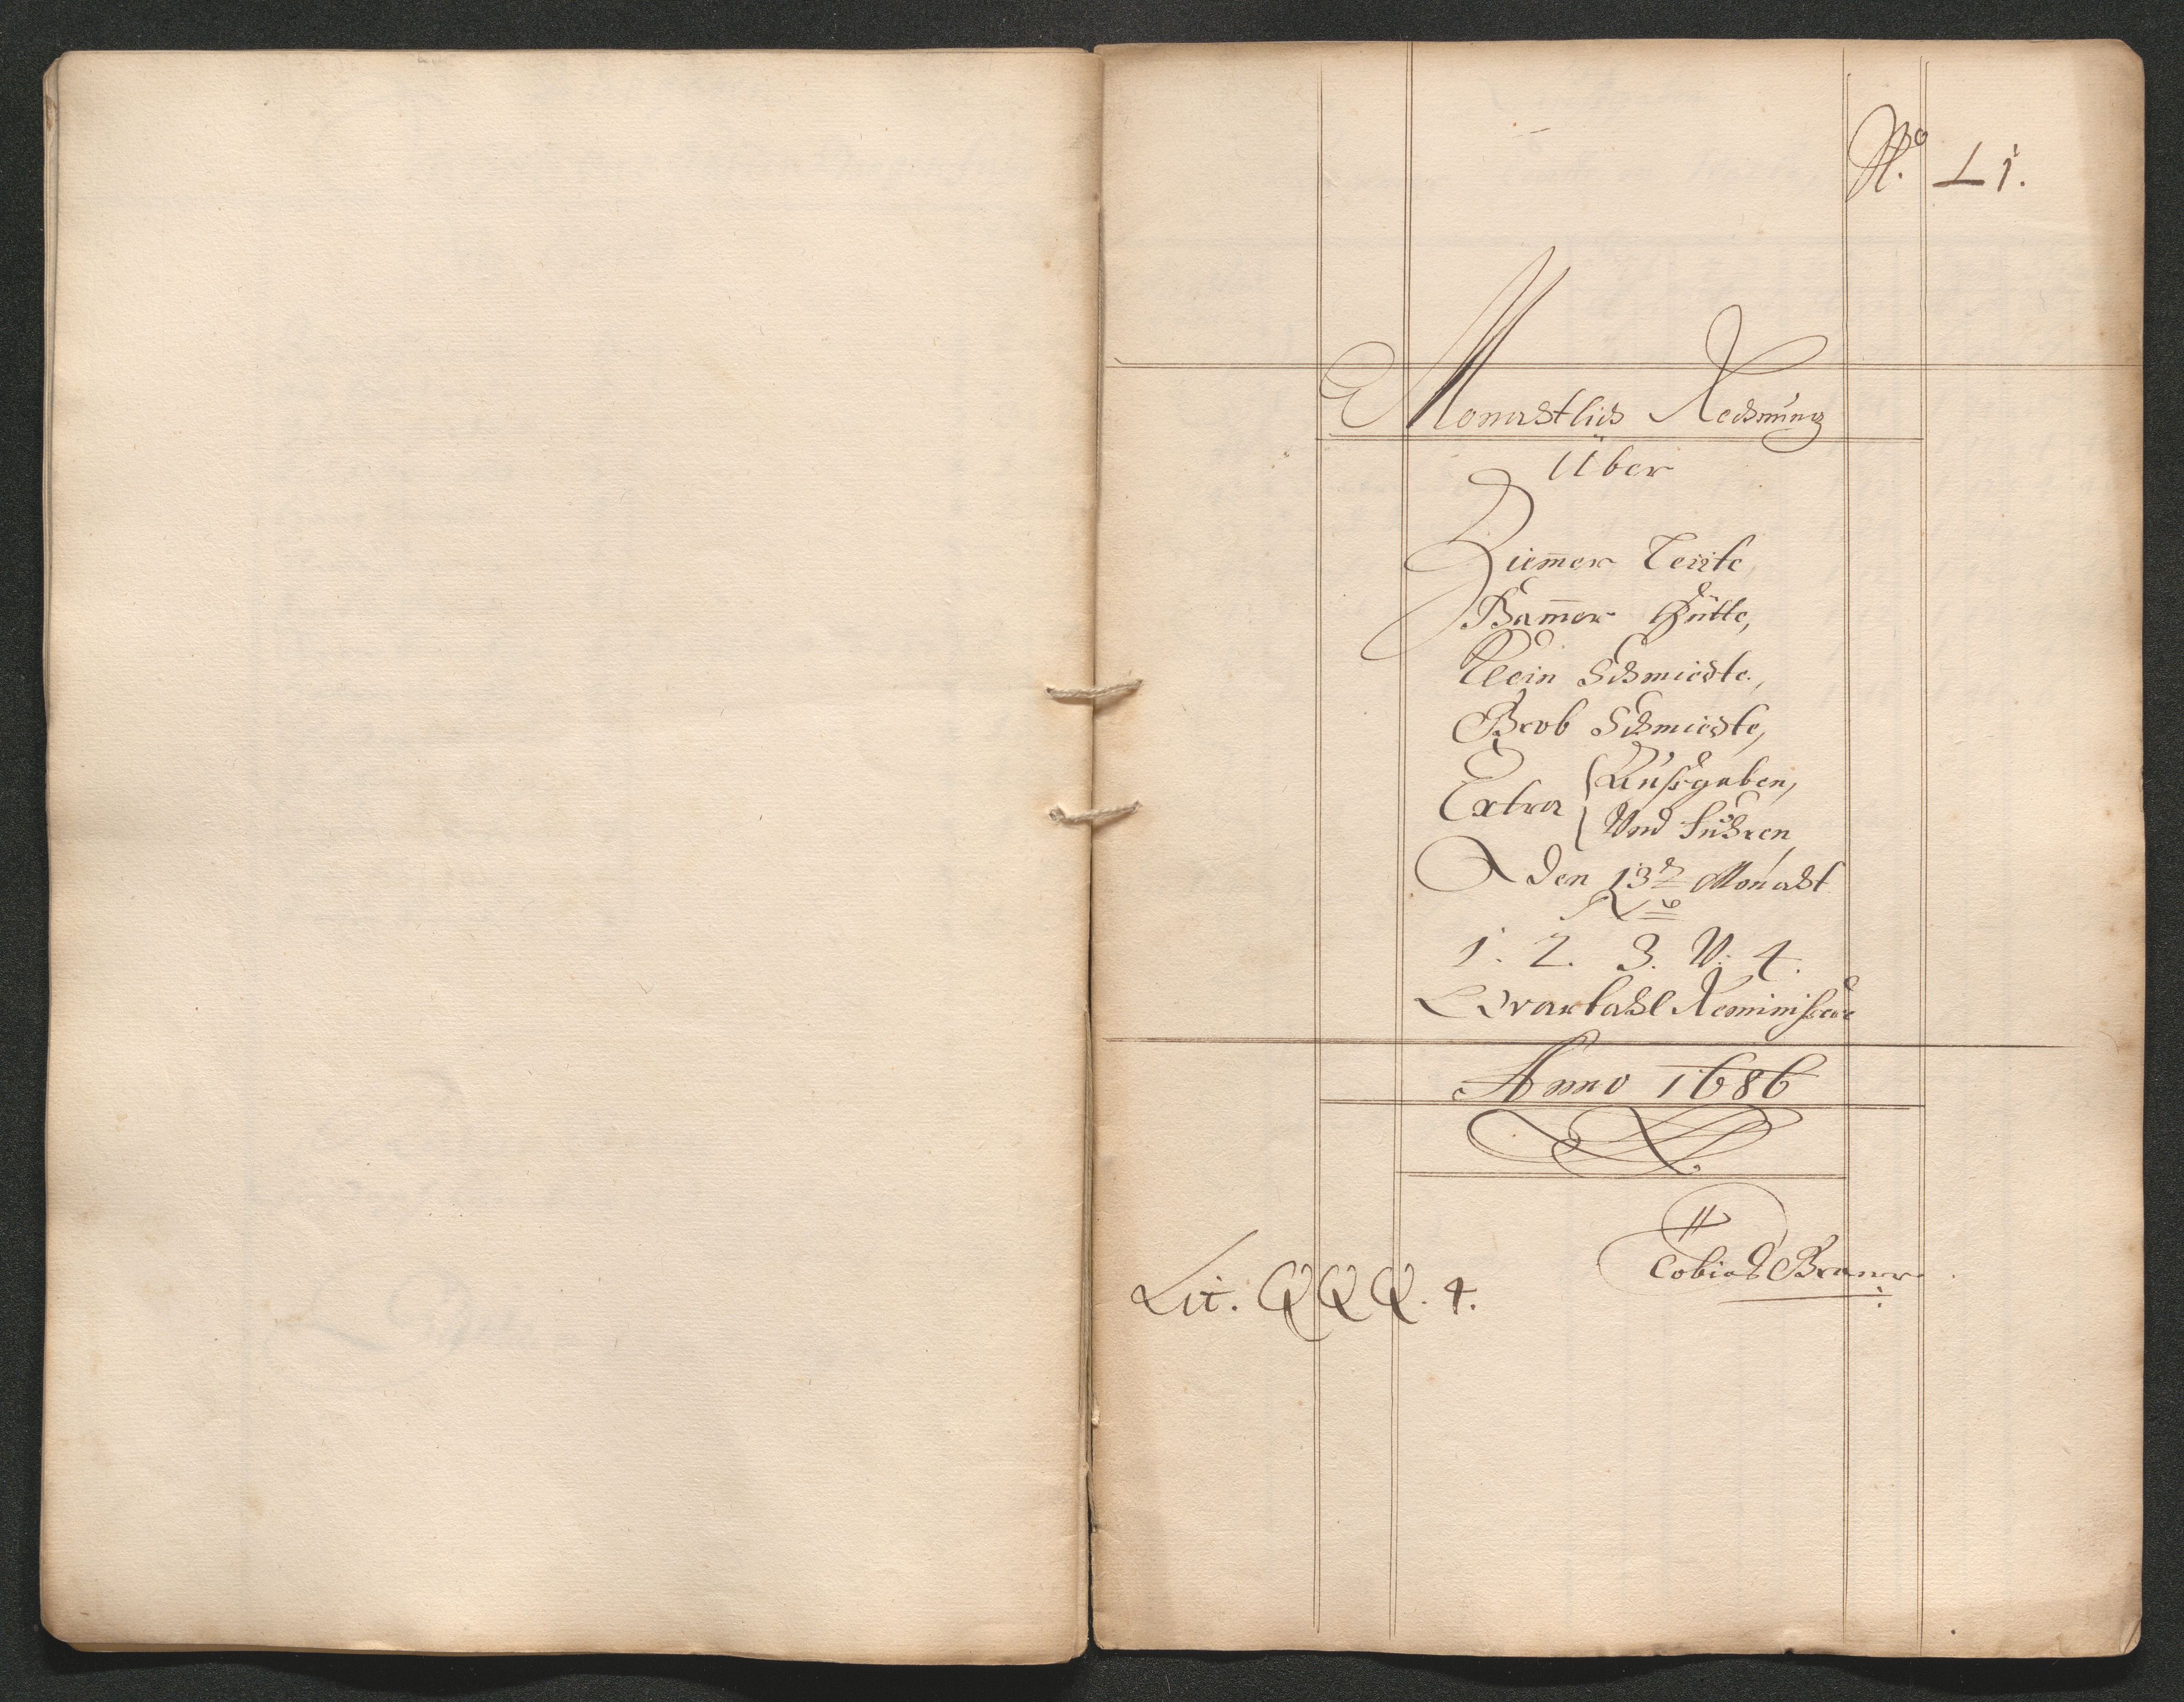 No. L1.
Monahtlich Rechnung
Über
Ziem̄er Leüte,
Bam̄er Hütte,
Klein Schmiedte,
Grob Schmiedte,
Extra Aussgaben,
Und Fuhren,
Den 13n Monaht
No
1. 2. 3. U. 4.
Qvartahl Reminiscere
Anno 1686
Tobias Braner
Lit. QQQ. 4.